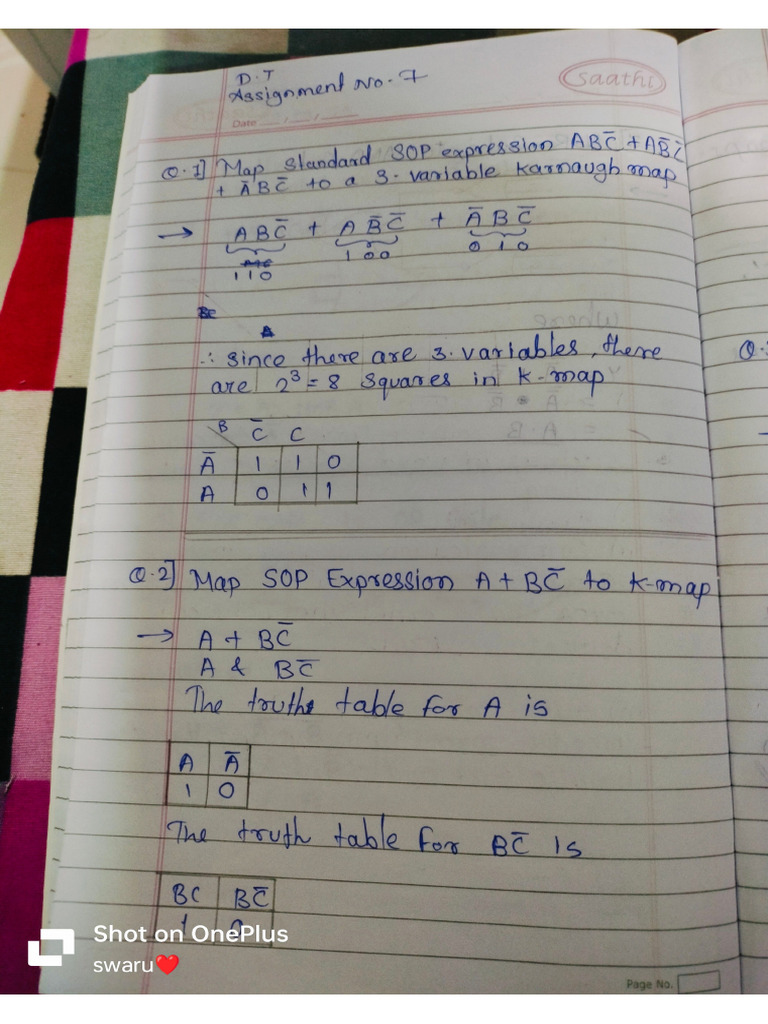 D.T
Assignment No. 7
Saathi
Date
Q.1] Map standard SOP expression ABC̅ + AB̅C̅
+ A̅BC̅ to a 3-variable Karnaugh map
→ ABC̅ + AB̅C̅ + A̅BC̅
110 100 010
∴ Since there are 3-variables, there
are 2³ = 8 squares in K-map
B C̅ C
A̅ 1 1 0
A 0 1 1
Q.2] Map SOP Expression A + BC̅ to K-map
→ A + BC̅
A & BC̅
The truth table for A is
A A̅
1 0
The truth table for BC̅ is
BC BC̅
1 0
Shot on OnePlus
swaru❤️
Page No.